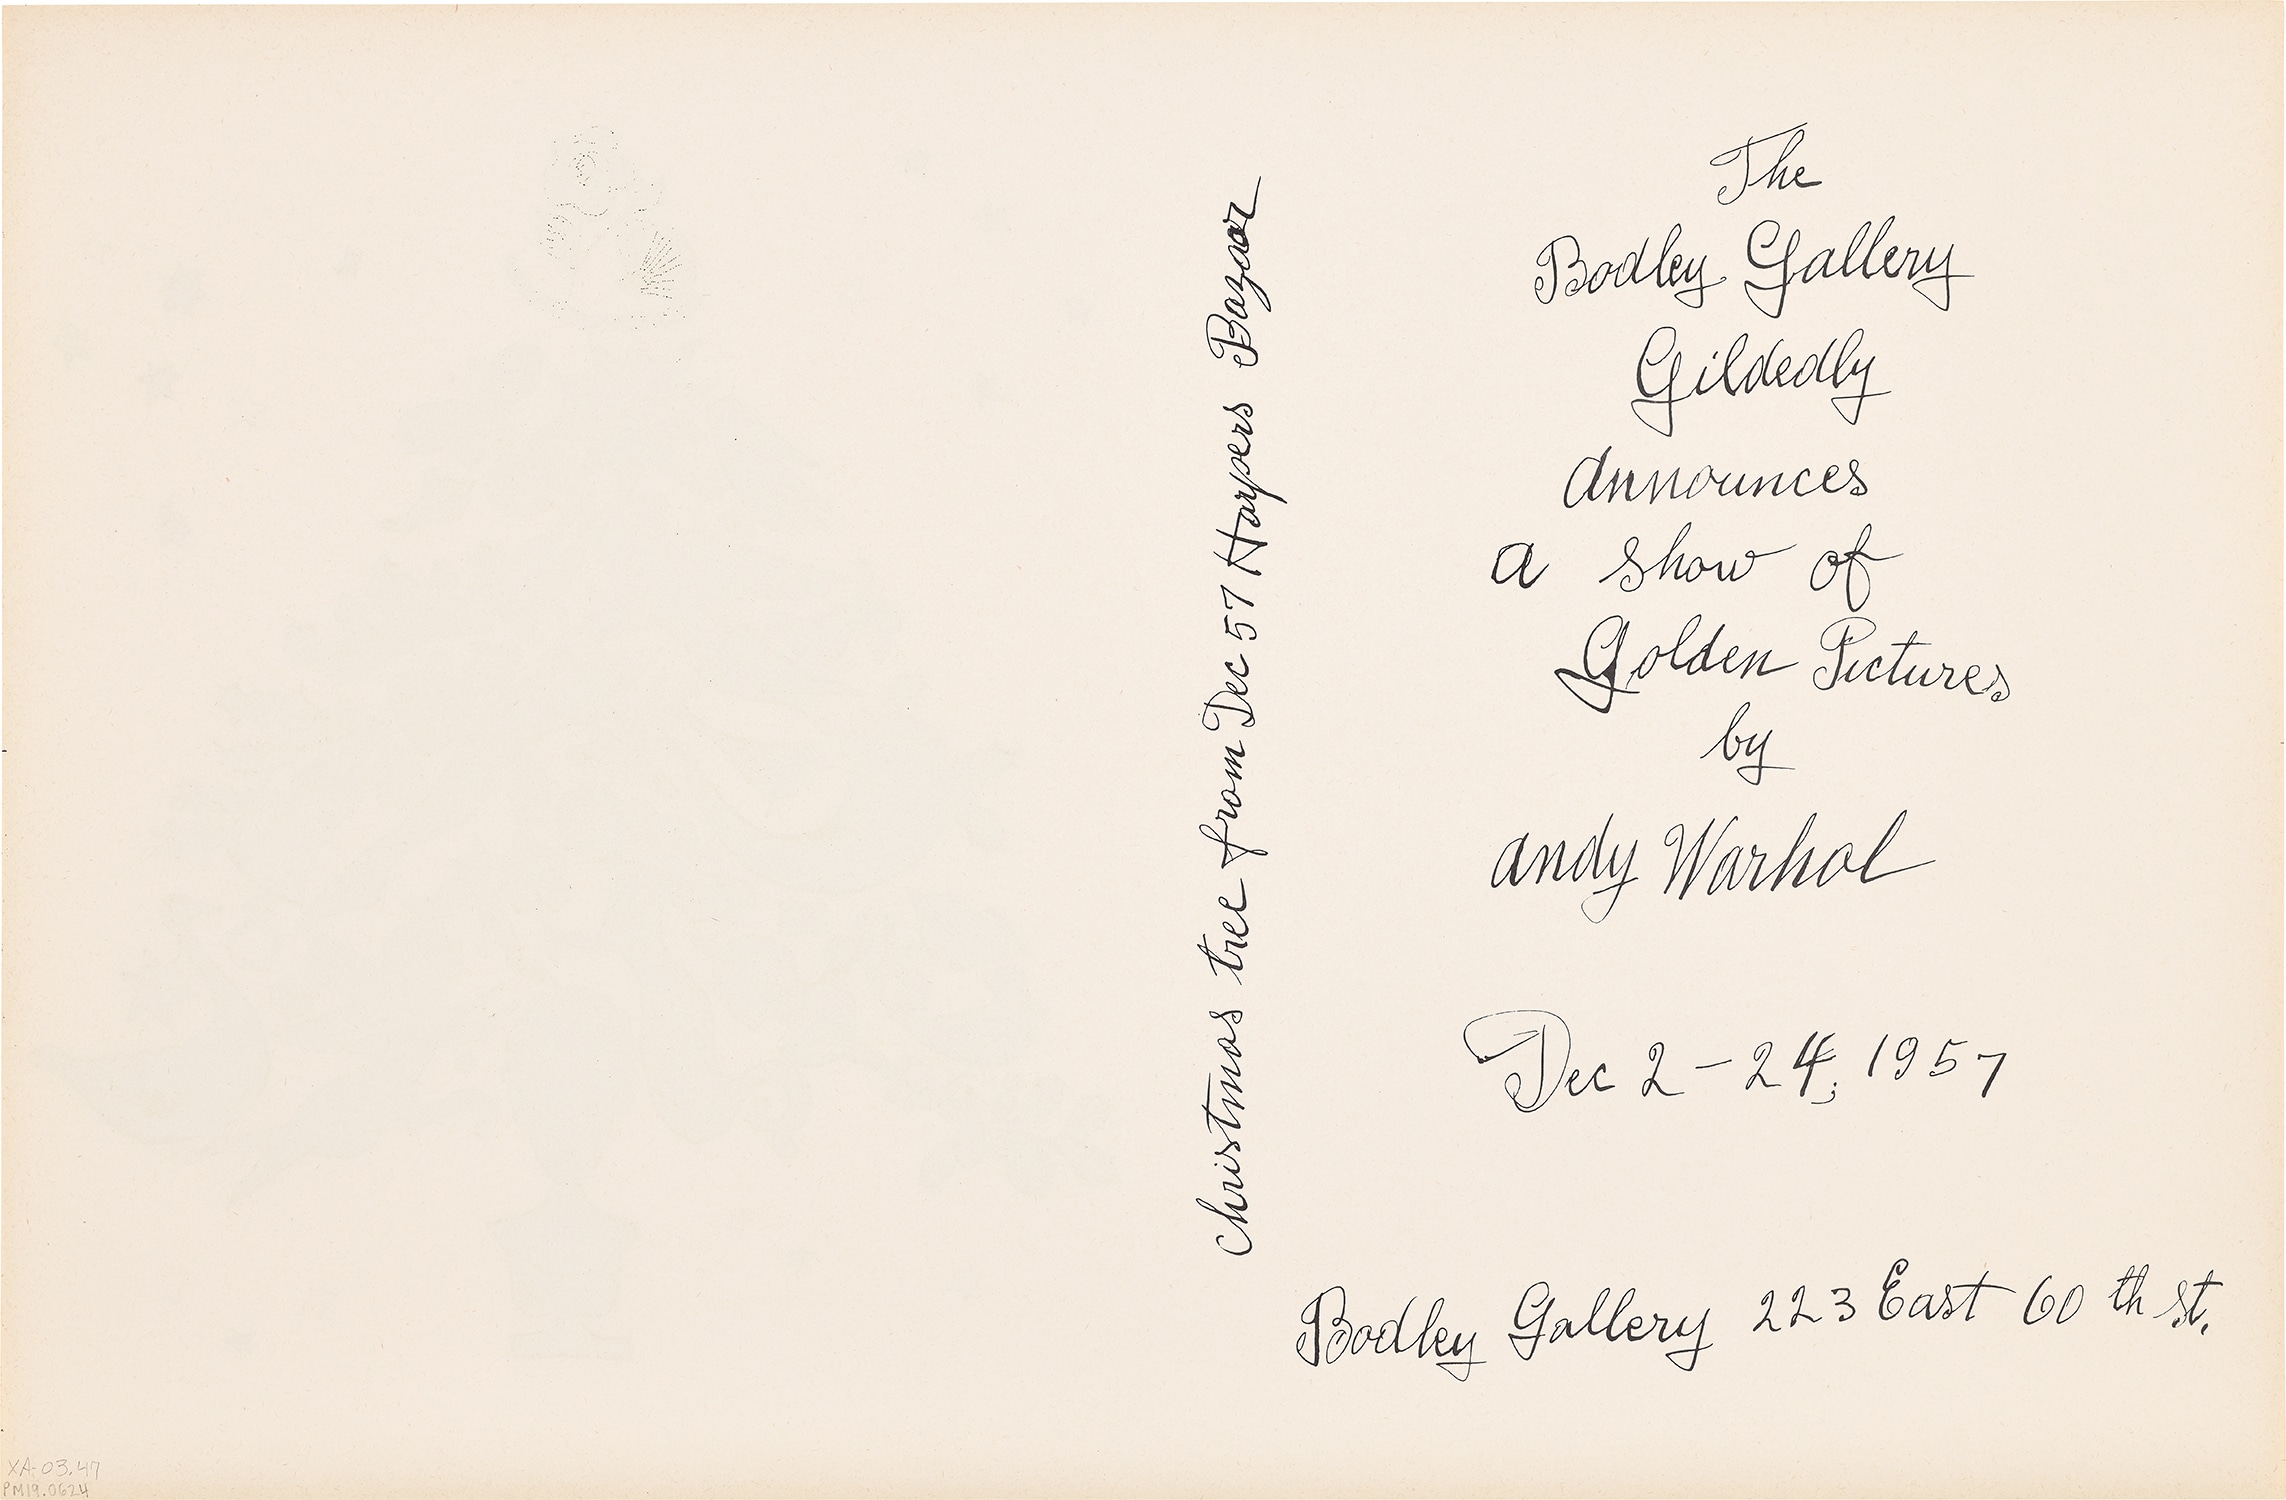 Christmas tree from Dec 57 Harpers Bazaar
The
Bodley Gallery
Gildedly
announces
a show of
Golden Pictures
by
andy Warhol
Dec 2 - 24, 1957
Bodley Gallery 223 East 60 th st.
XA-03.47
PM19.0624